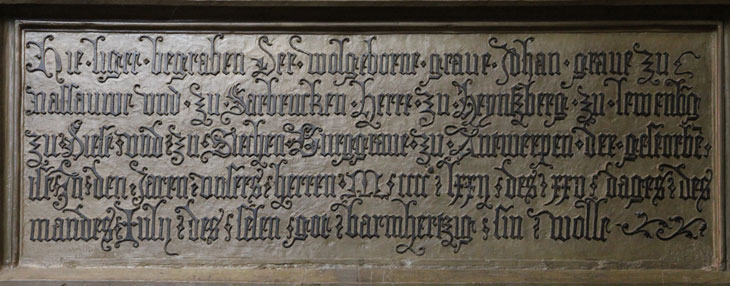 Hie · liget · begraben · Der · wolgeborne · graue · Johan · graue · zu
nassauwe · vnd · zu · Sarbrucken · Herre · zu · Heynßberg · zu · lewenb͞g
zu · Diest · vnd · zu · Siechen · Burggraue · zu · Antwerpen · der · gestorbē ·
ist · In · den · Jaren · vnsers · herren · M · cccc · lxxij · des · xxv · dages · des
mandes · July · des · selen · got · barmhertzig · sin · wolle